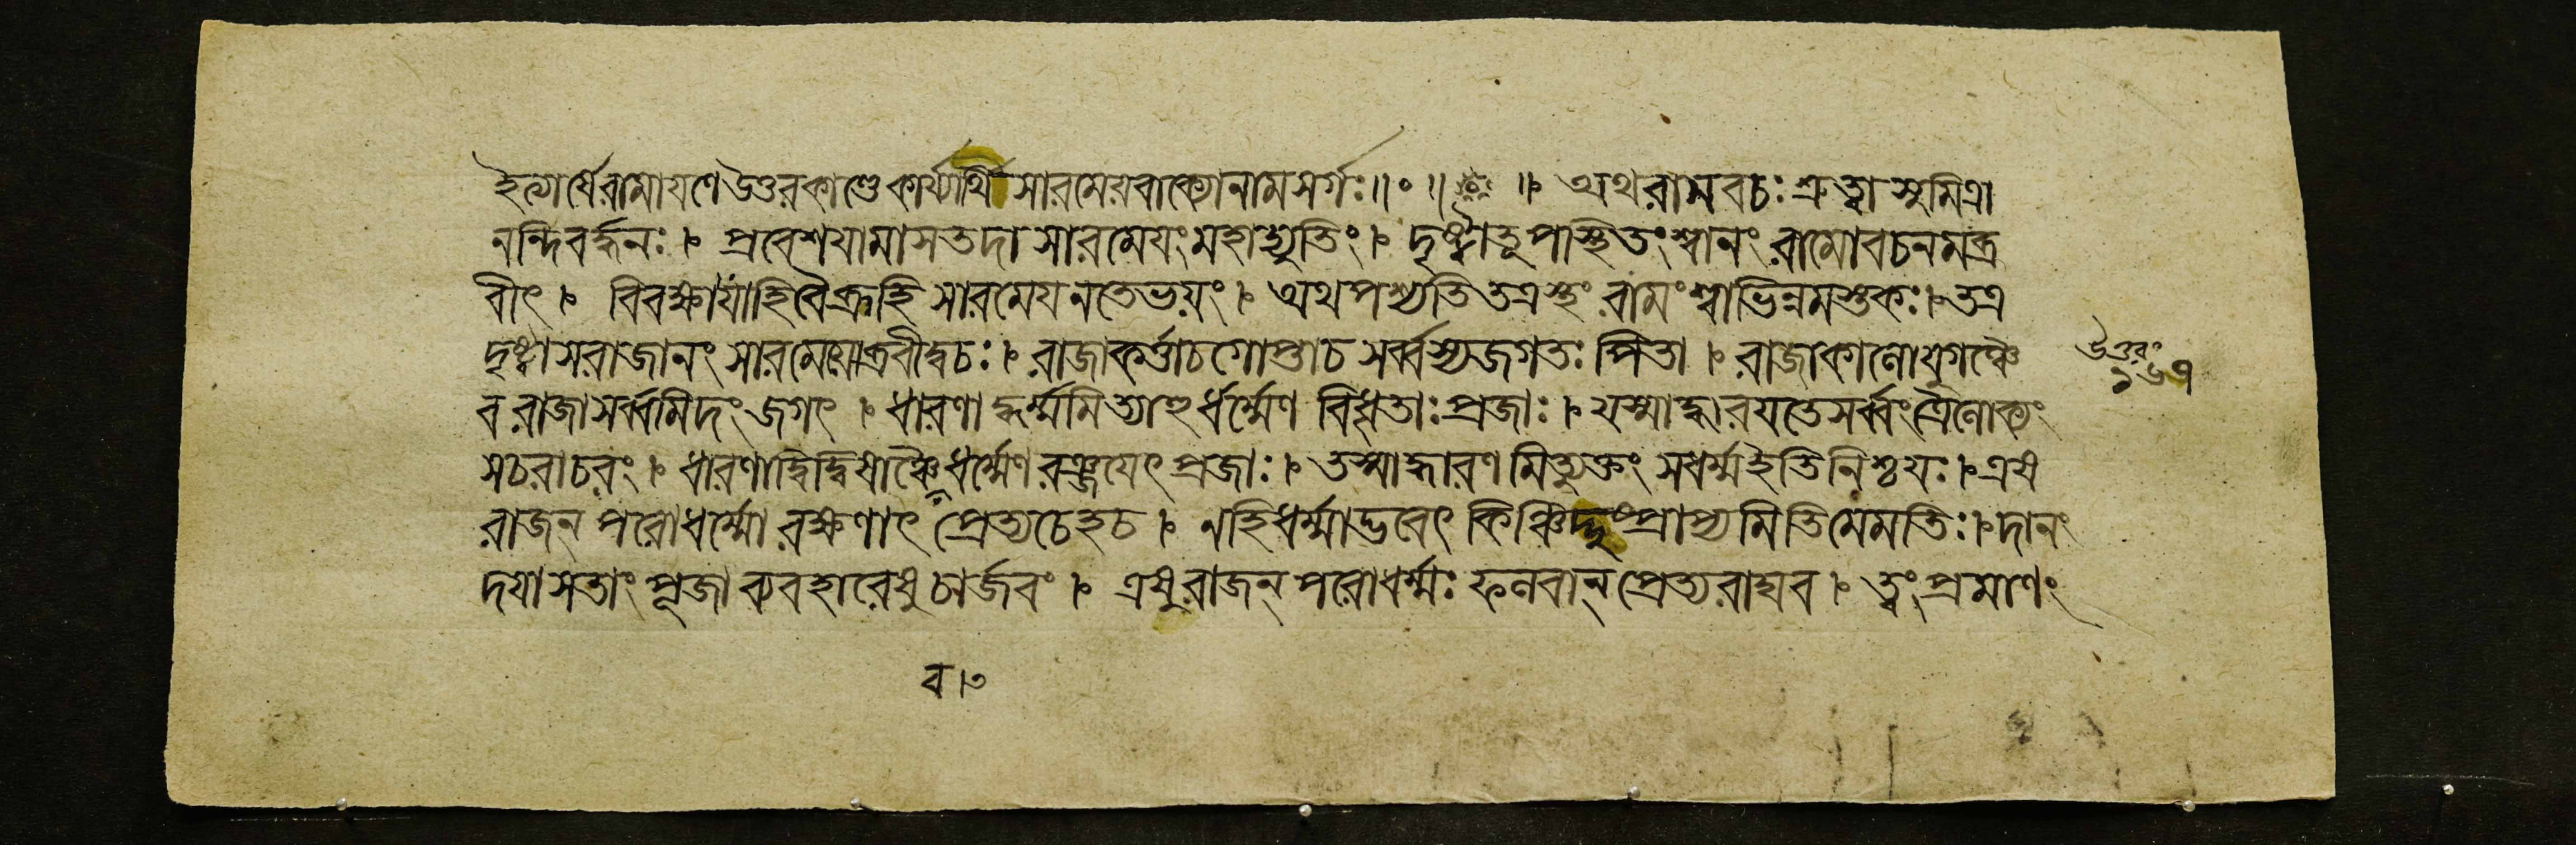 ইত্যার্ষেরামায়ণেউত্তরকাণ্ডেকার্য্যার্থিসারমেয়বাক্যোনামসর্গঃ॥০॥ ॥ অথরামবচঃশ্রুত্বাসুমিত্রা
নন্দিবর্দ্ধনঃ। প্রবেশয়ামাসতদাসারমেয়ংমহাদ্যুতিং। দৃষ্ট্বাতুপাস্থিতংশ্বানংরামোবচনমব্র
বীৎ। বিবক্ষায়াহিবৈব্রূহিসারমেয়নতেভয়ং। অথপশ্যতিতত্রস্থংরামংশ্বাভিন্নমস্তকঃ।তত্র
দৃষ্ট্বাসরাজানংসারমেয়োব্রবীদ্বচঃ। রাজাকর্ত্তাচগোপ্তাচসর্ব্বস্যজগতঃপিতা। রাজাকালোযুগঞ্চৈ
বরাজাসর্ব্বমিদংজগৎ। ধারণাদ্ধর্ম্মমিত্যাহুর্ধর্ম্মেণবিধৃতাঃপ্রজাঃ। যস্মাদ্ধারয়তেসর্ব্বংত্রৈলোক্যং
সচরাচরং। ধারণাদ্বিদ্বিষাঞ্চৈবধর্ম্মেণরঞ্জয়েৎপ্রজাঃ। তস্মাদ্ধারণমিত্যুক্তংসধর্ম্মইতিনিশ্চয়ঃ।এষ
রাজন্পরোধর্ম্মোরক্ষণাৎপ্রেত্যচেহচ। নহিধর্ম্মাদ্ভবেৎকিঞ্চিদ্দুষ্প্রাপ্যমিতিমেমতিঃ।দানং
দয়াসতাংপূজাব্যবহারেষুচার্জবং। এষুরাজন্পরোধর্ম্মঃফলবান্প্রেত্যরাঘব। ত্বংপ্রমাণং
উত্তরং
১৬৭